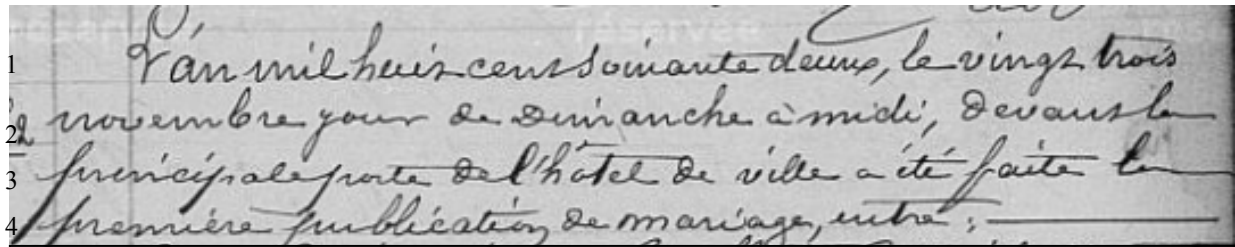 L'an mil huit cent soixante deux, le vingt trois
novembre jour de Dimanche à midi, devant la
principale porte de l'hôtel de ville a été faite la
première publication de mariage, entre :